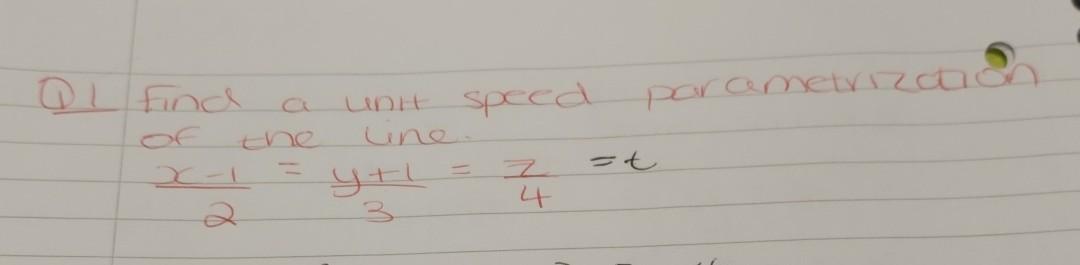 Q1 Find a unit speed parametrization
of the line.
x-1/2 = y+1/3 = z/4 = t